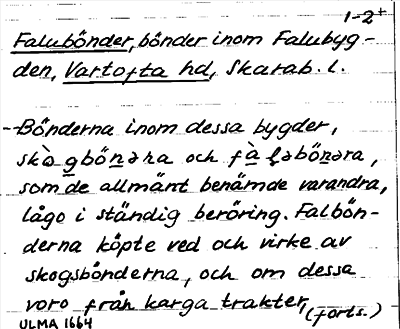 1-2+
Falubönder, bönder inom Falubyg-
den, Vartofta hd, Skarab. l.
--Bönderna inom dessa bygder,
skò̀gbönəra och fàl̥əbönəra,
som de allmänt benämde varandra,
lågo i ständig beröring. Falbön-
derna köpte ved och virke av
skogsbönderna, och om dessa
voro från karga trakter, (forts.)
ULMA 1664